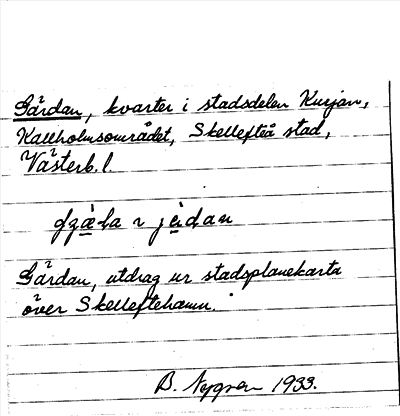 Gärdan, kvarter i stadsdelen Kurjan,
Kallholmsområdet, Skellefteå stad,
Västerb. l.
Gärdan, utdrag ur stadsplanekarta
över Skelleftehamn.
B. Nygren 1933.